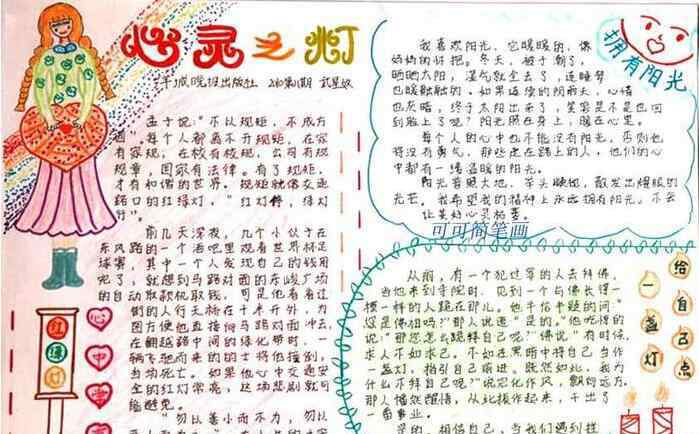 心灵之灯
孟子说:"不以规矩,不成方
圆"。每个人都离不开规矩,在家
有家规,在校有校规,公司有规
规章,国家有法律。有了规矩,
才有和谐的世界。规矩就像交通
路口的红绿灯,"红灯停,绿灯
行"。
前几天深夜,几个小伙子在
东风路的一个酒吧里观看世界杯足
球赛,其中一个人发现自己的钱用
完了,就想到马路对面的东峻广场
的自动取款机取钱,可是他看看过
街的人行天桥在十米开外,为
图方便他直接向马路对面冲去,
在翻越路中间的绿化带时,一
辆飞驰而来的的士将他撞倒,
当场死亡。如果他心中交通安
全的红灯常亮,这场悲剧就可
能避免。
"勿以善小而不为,勿以
红
绿
灯
心
中
拥有阳光
我喜欢阳光,它暖暖的,像
妈妈的怀抱。冬天,被子潮了,
晒晒太阳,湿气就全去了,连睡梦
也暖融融的。如果连续的阴雨天,心情
也灰暗,终于太阳出来了,笑容是不是也回
到脸上了呢?阳光照在身上,暖在心里。
每个人的心中也不能没有阳光,否则他
将没有勇气,那些走在路上的人,他们的心
中都有一缕温暖的阳光。
阳光普照大地,芋头映他,散发出耀眼的
光芒。我希望我的精神上永远拥有阳光,不会
让美好心灵枯萎。
可可简笔画
给
自
己
一
盏
灯
从前,有一个犯过罪的人去拜佛,
当他来到寺院时,见到一个与佛长得一
模一样的人跪在那儿。他千恰千疑的问"
您是佛祖吗?"那人说道"是的。"他吃惊的
说"那您怎么跪拜自己呢?"佛说"有时候,
求人不如求己。不如在黑暗中将自己当作
一盏灯,指引自己前进。既然如此,我为
什么不拜自己呢?"说完化作风,飘向远方。
那人幡然醒悟,从此振作起来,干出了
一番事业。
是的,相信自己,当我们遇到挫